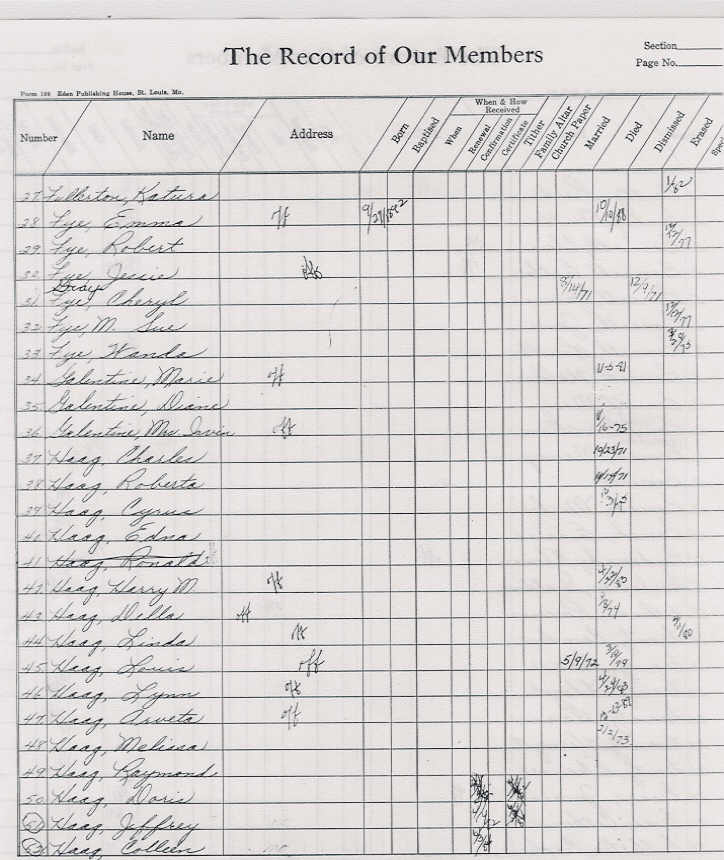 The Record of Our Members
Section
Page No.
Form 166 Eden Publishing House, St. Louis, Mo.
Number Name Address Born Baptised When & How Received When Renewal Confirmation Certificate Tither Family Altar Church Paper Married Died Dismissed Erased
27 Fullerton, Katura 1/82
28 Fye, Emma off 9/27/1892 10/10/88
29 Fye, Robert
30 Fye, Jessie off
Gray
31 Fye, Cheryl 8/14/71 12/9/71
32 Fye, M. Sue
33 Fye, Wanda
34 Galentine, Marie off 11-5-81
35 Galentine, Diane
36 Galentine, Mrs. Irvin off 16-75
37 Haag, Charles 10/23/71
38 Haag, Roberta
39 Haag, Cyrus
40 Haag, Edna
41 Haag, Ronald
42 Haag, Harry M. off
43 Haag, Della off
44 Haag, Linda off
45 Haag, Louis off 5/9/72
46 Haag, Lynn off
47 Haag, Arveta off
48 Haag, Melissa 2/2/73
49 Haag, Raymond
50 Haag, Doris
51 Haag, Jeffrey
52 Haag, Colleen